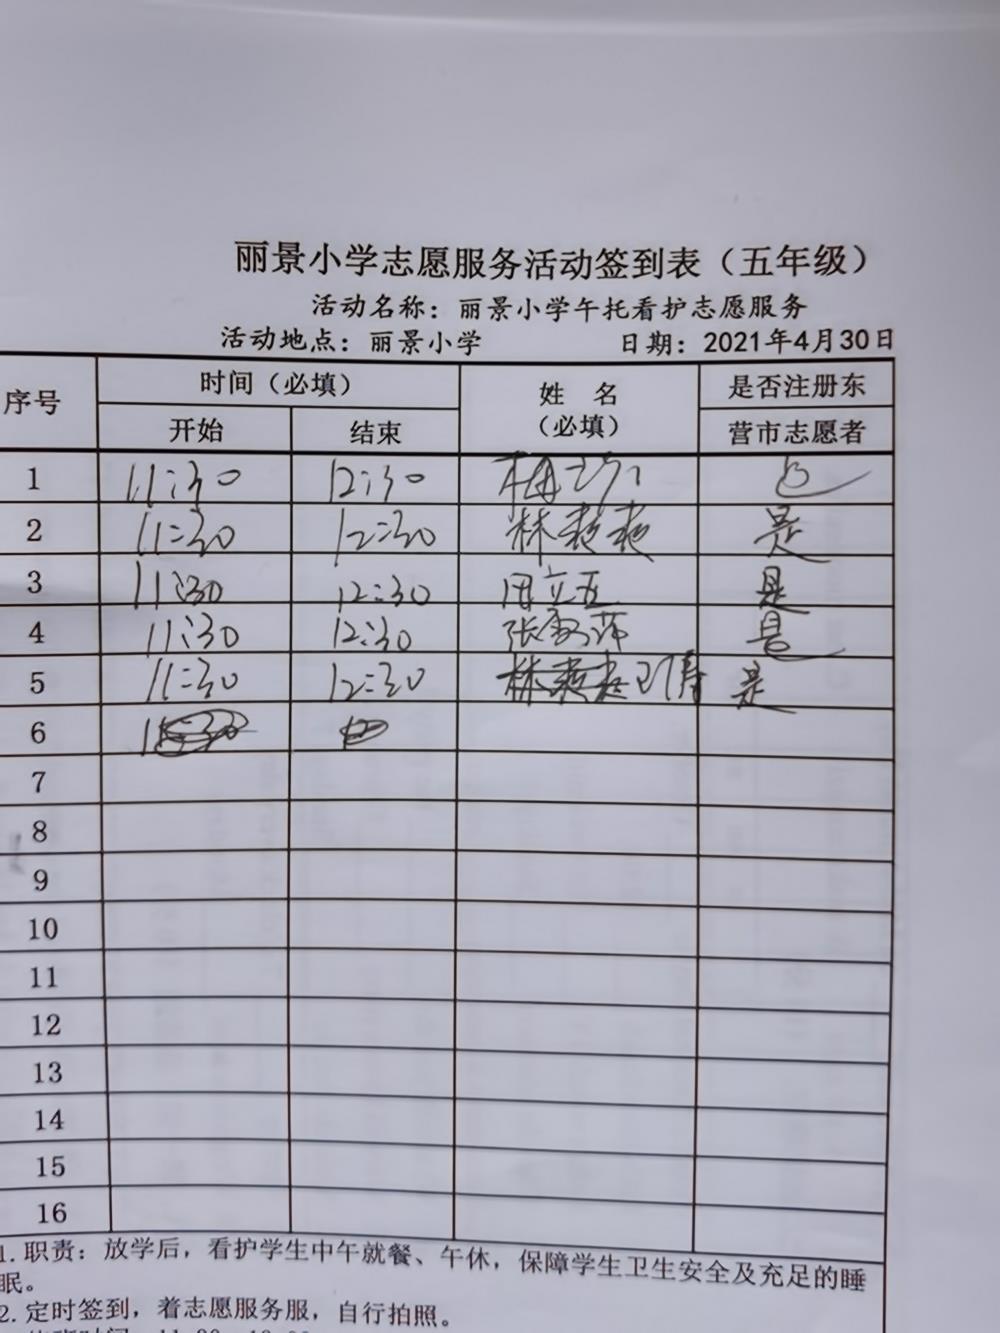 丽景小学志愿服务活动签到表（五年级）
活动名称：丽景小学午托看护志愿服务
活动地点：丽景小学 日期：2021年4月30日
序号 时间（必填） 姓 名（必填） 是否注册东营市志愿者
开始 结束
1 11:30 12:30
2 11:30 12:30 林 是
3 11:30 12:30 是
4 11:30 12:30 张 是
5 11:30 12:30 是
6
7
8
9
10
11
12
13
14
15
16
1.职责：放学后，看护学生中午就餐、午休，保障学生卫生安全及充足的睡
眠。
2.定时签到，着志愿服务服，自行拍照。